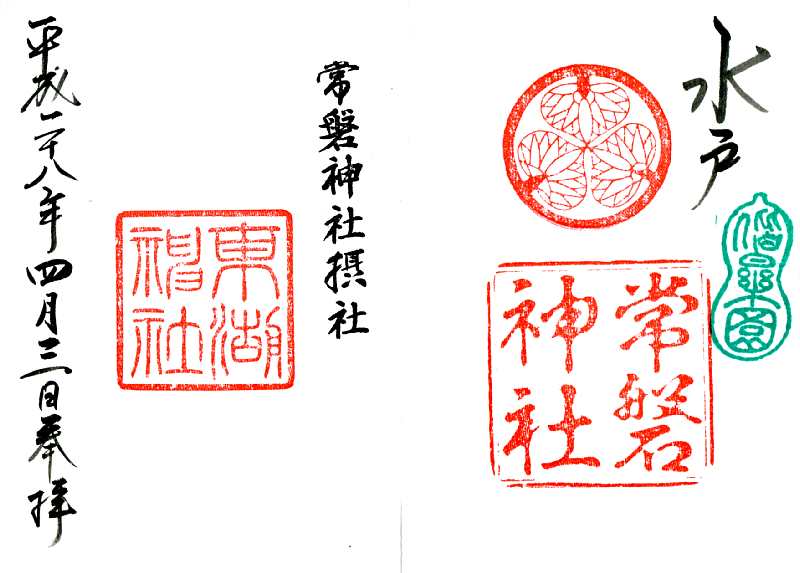 水戸
偕楽園
常磐
神社
常磐神社摂社
東湖
神社
平成二十八年四月三日奉拝